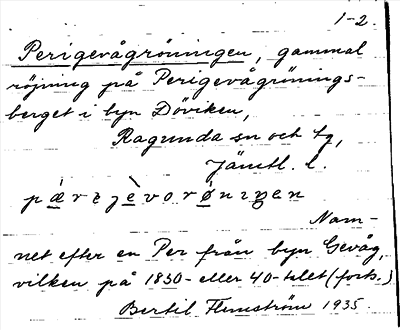 1-2.
Perigevågröningen, gammal
röjning på Perigevågrönings-
berget i byn Döviken,
Ragunda sn och tg,
Jämtl. l.
Nam-
net efter en Per från byn Gevåg,
vilken på 1830- eller 40-talet (forts.)
Bertil Flemström 1935.